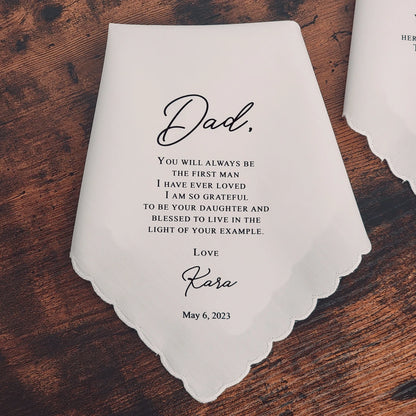 Dad,
YOU WILL ALWAYS BE
THE FIRST MAN
I HAVE EVER LOVED
I AM SO GRATEFUL
TO BE YOUR DAUGHTER AND
BLESSED TO LIVE IN THE
LIGHT OF YOUR EXAMPLE.
LOVE
Kara
May 6, 2023